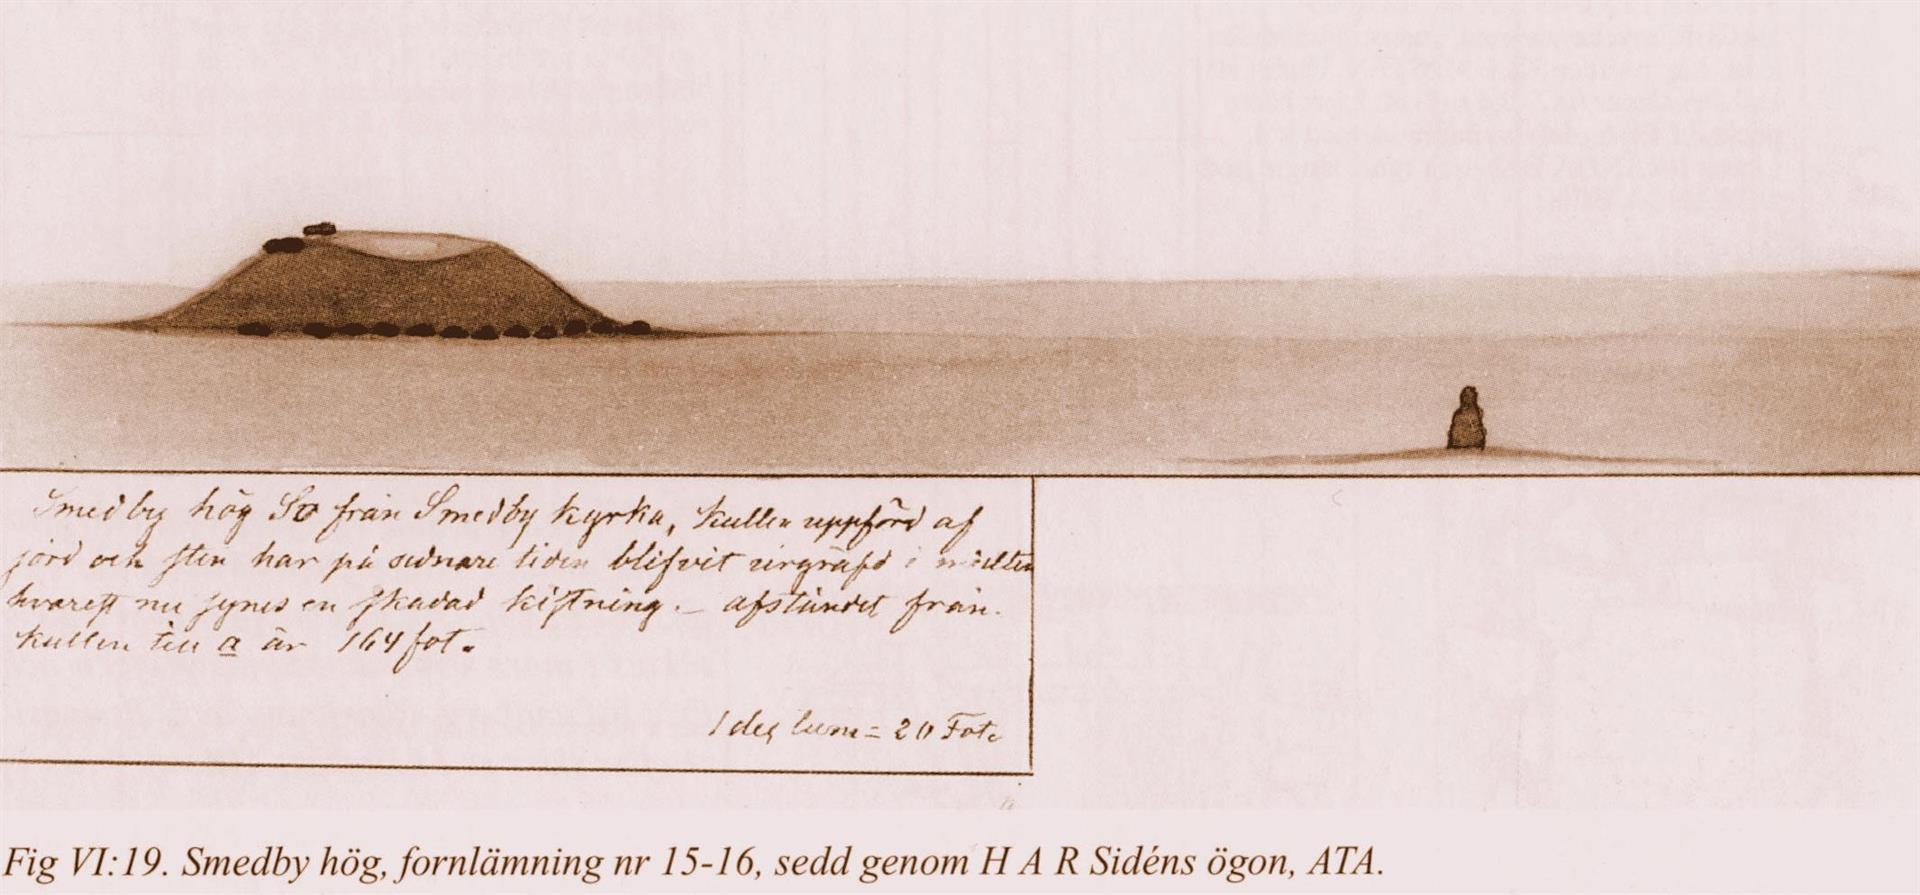 Smedby hög So från Smedby kyrka, kullen uppförd af
jord och sten har på sednare tiden blifvit urgräfd i midten
hvarest nu synes en skadad kistning. – afståndet från
kullen till a är 164 fot.
1 dec tum = 20 Fot.
Fig VI:19. Smedby hög, fornlämning nr 15-16, sedd genom H A R Sidéns ögon, ATA.